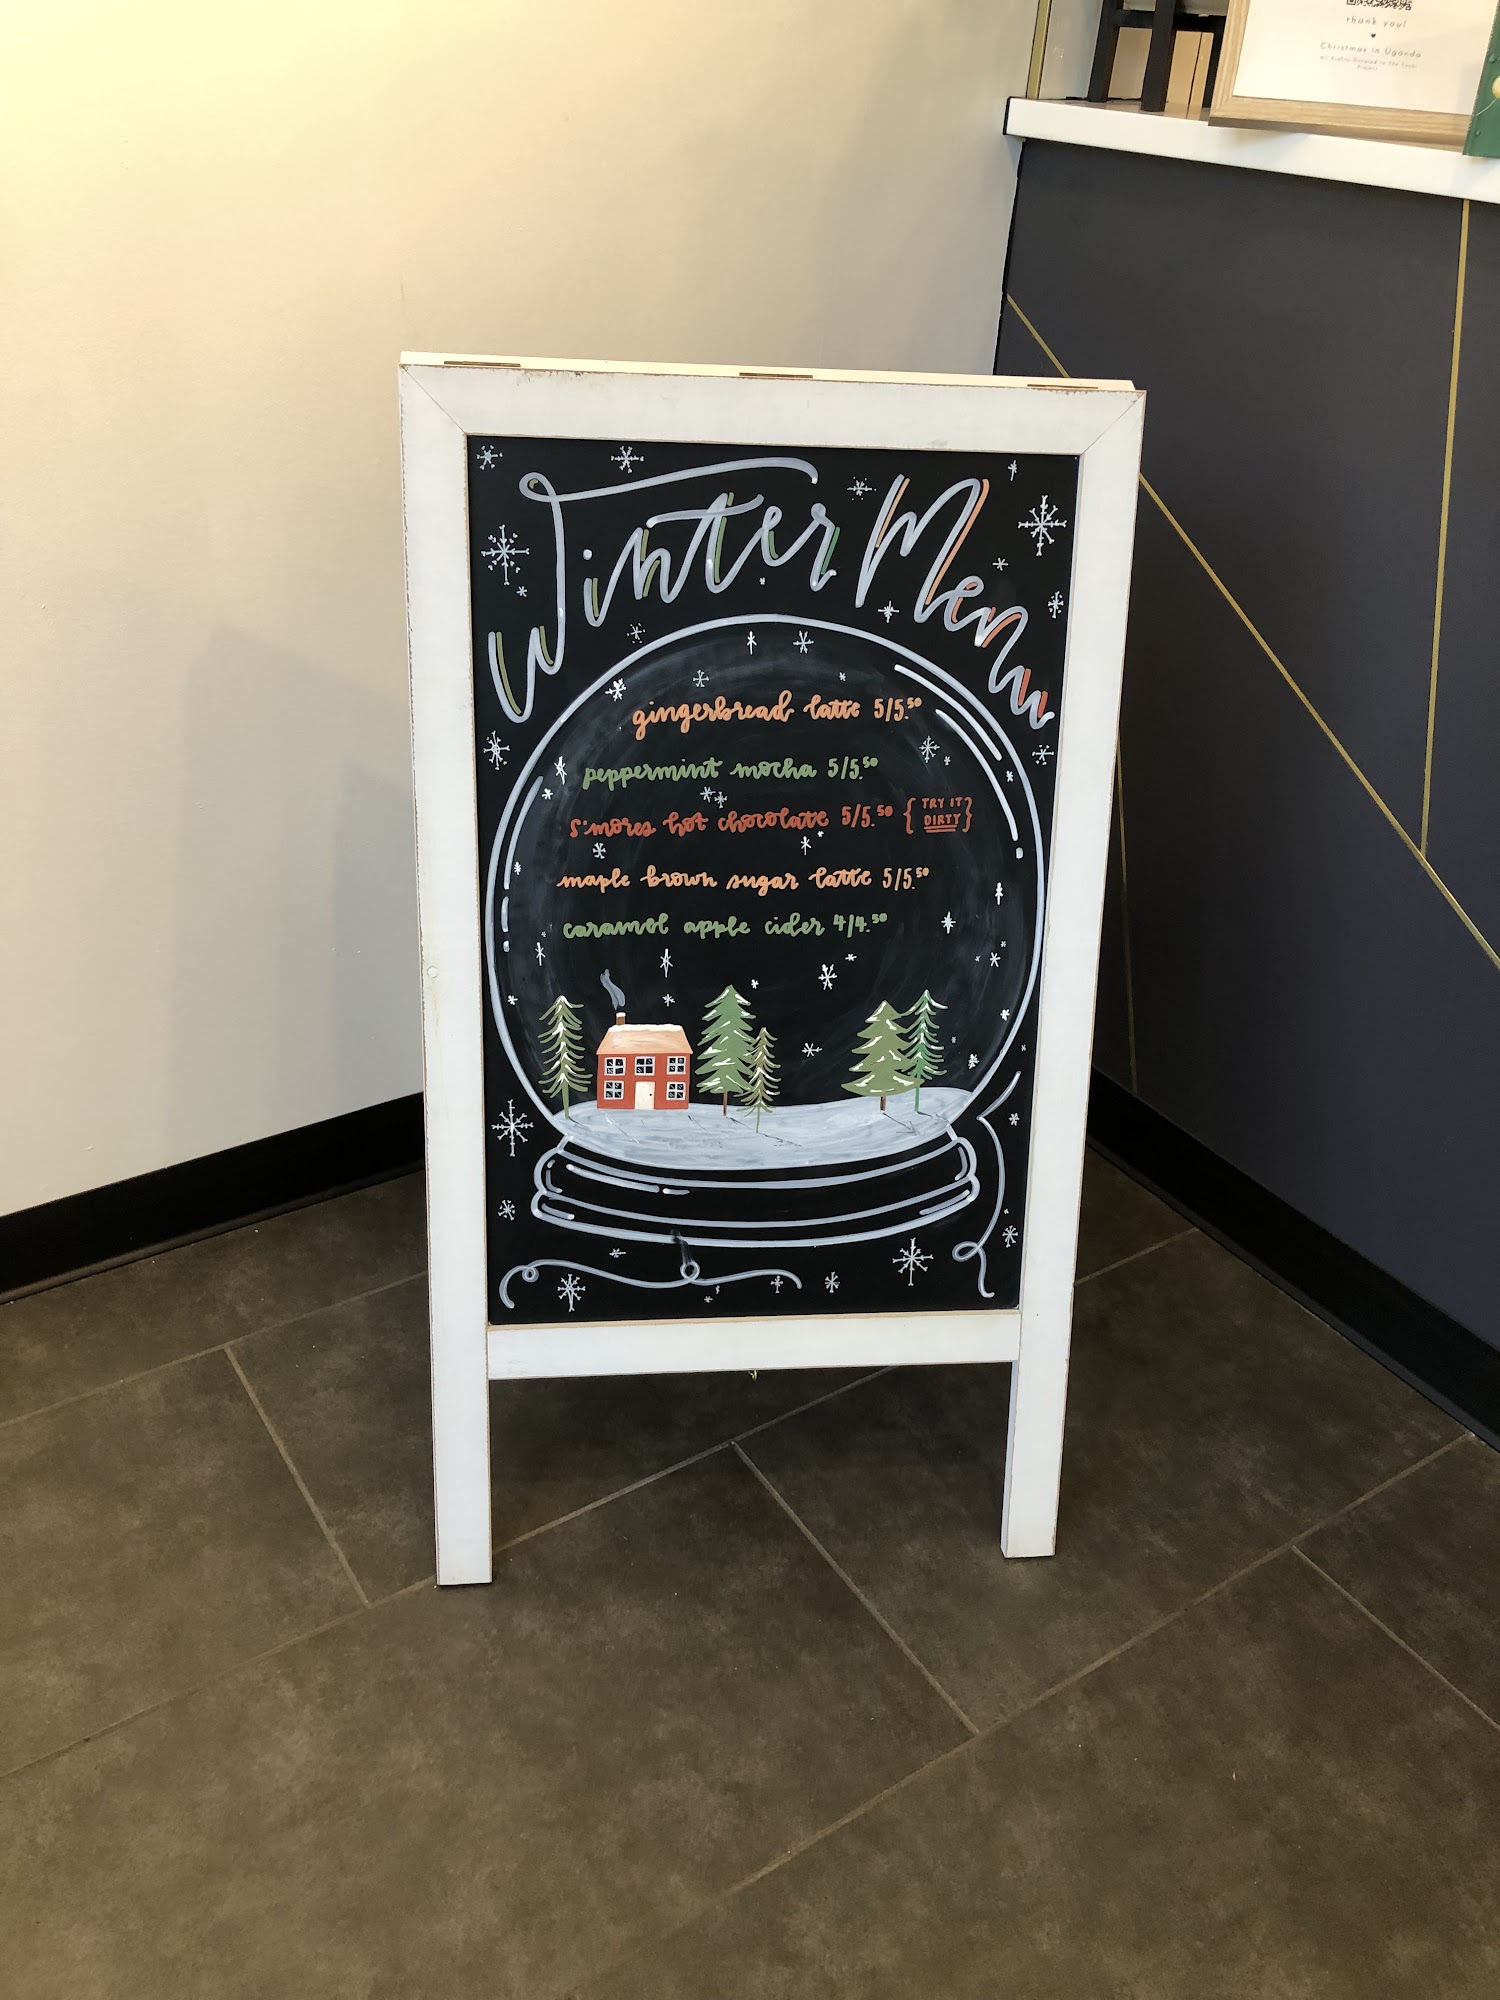 thank you!
Christmas in Uganda
Winter Menu
gingerbread latte 5/5.50
peppermint mocha 5/5.50
S'mores hot chocolate 5/5.50 {TRY IT
DIRTY}
maple brown sugar latte 5/5.50
caramel apple cider 4/4.50